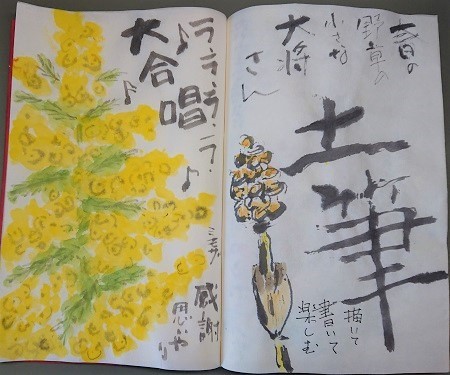 春の
野草の
小さな
大将
さん
土筆
描いて
書いて
楽しむ
ラ・ラ・ラ・ラ・
大合唱
ミモザ
感謝
思いやり